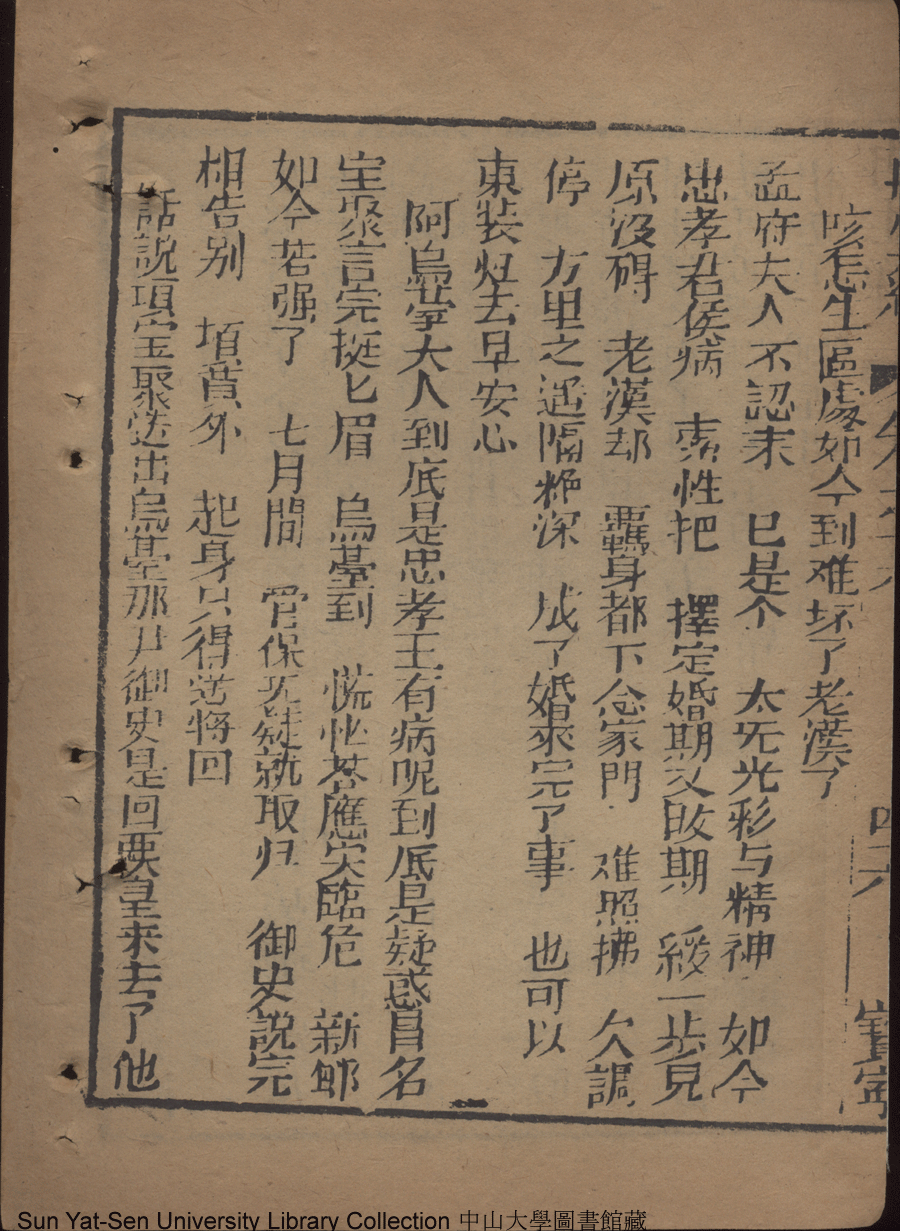 咳怎生區處如今到难坏了老漢了
孟府夫人不認末 已是个 太旡光彩与精神 如今
忠孝君侯病 索性把 擇定婚期又改期 緩一步見
原没碍 老漢却 羈身都下念家門 难照拂 欠調
停 万里之遥隔絶深 成了婚來完了事 也可以
束装归去早安心
阿烏䑓大人到底是忠孝王有病呢到底是疑惑冒名
宝聚言完挺匕眉 烏臺到 慌忙荅應実臨危 新郎
如今若强了 七月間 管保旡疑就取归 御史說完
相告别 項貢外 起身只得送將回
話說項宝聚送出烏䑓那尹御史是回要皇来去了他
寳寕
Sun Yat-Sen University Library Collection 中山大學圖書館藏